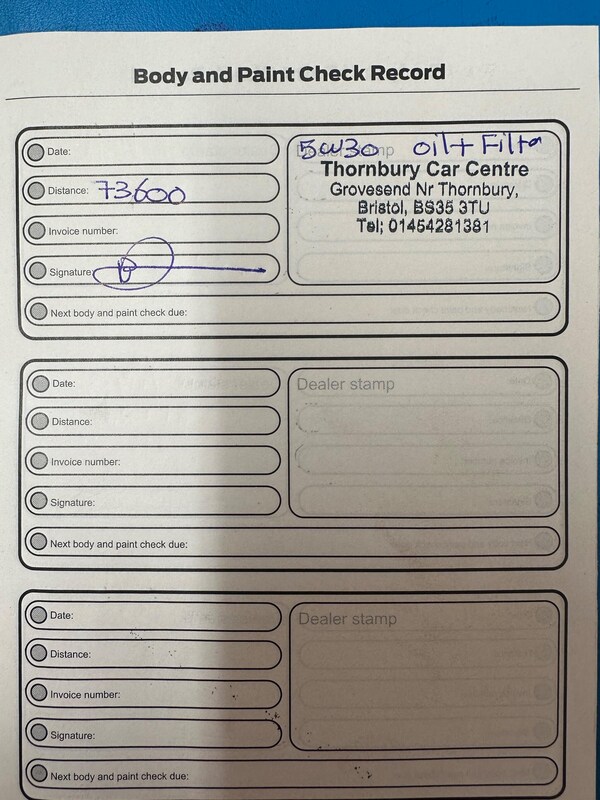 Body and Paint Check Record
Date:
Distance: 73600
Invoice number:
Signature:
Next body and paint check due:
5w30 oil + Filter
Dealer stamp
Thornbury Car Centre
Grovesend Nr Thornbury,
Bristol, BS35 3TU
Tel; 01454281381
Date:
Distance:
Invoice number:
Signature:
Next body and paint check due:
Dealer stamp
Date:
Distance:
Invoice number:
Signature:
Next body and paint check due:
Dealer stamp